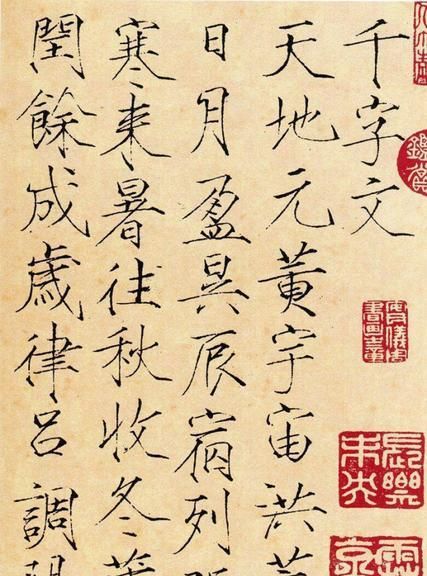 千字文
天地元黄宇宙洪
日月盈昃辰宿列
寒来暑往秋收冬
閏餘成歲律呂調